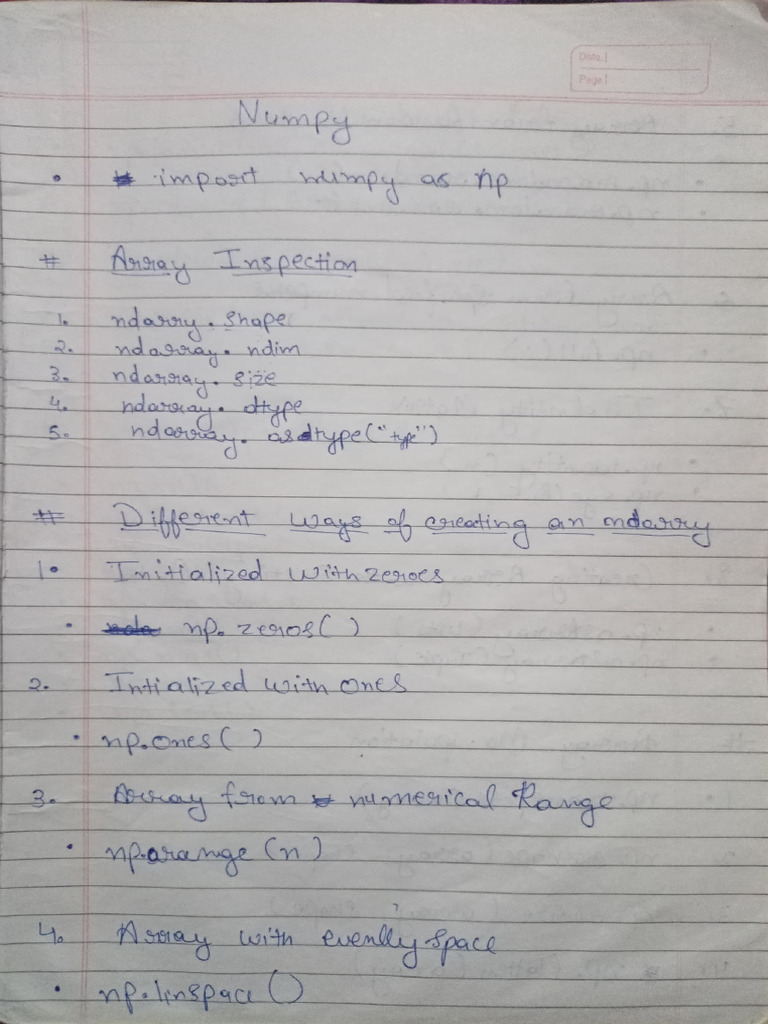 Date:
Page:
Numpy
• import numpy as np
# Array Inspection
1. ndarry. shape
2. ndarray. ndim
3. ndarray. size
4. ndarray. dtype
5. ndarray. asdtype("type")
# Different ways of creating an ndarry
1. Initialized with zeroes
• np. zeros( )
2. Intialized with ones
• np.ones( )
3. Array from numerical Range
• np.arange (n)
4. Array with evenlly space
• np.linspace ()